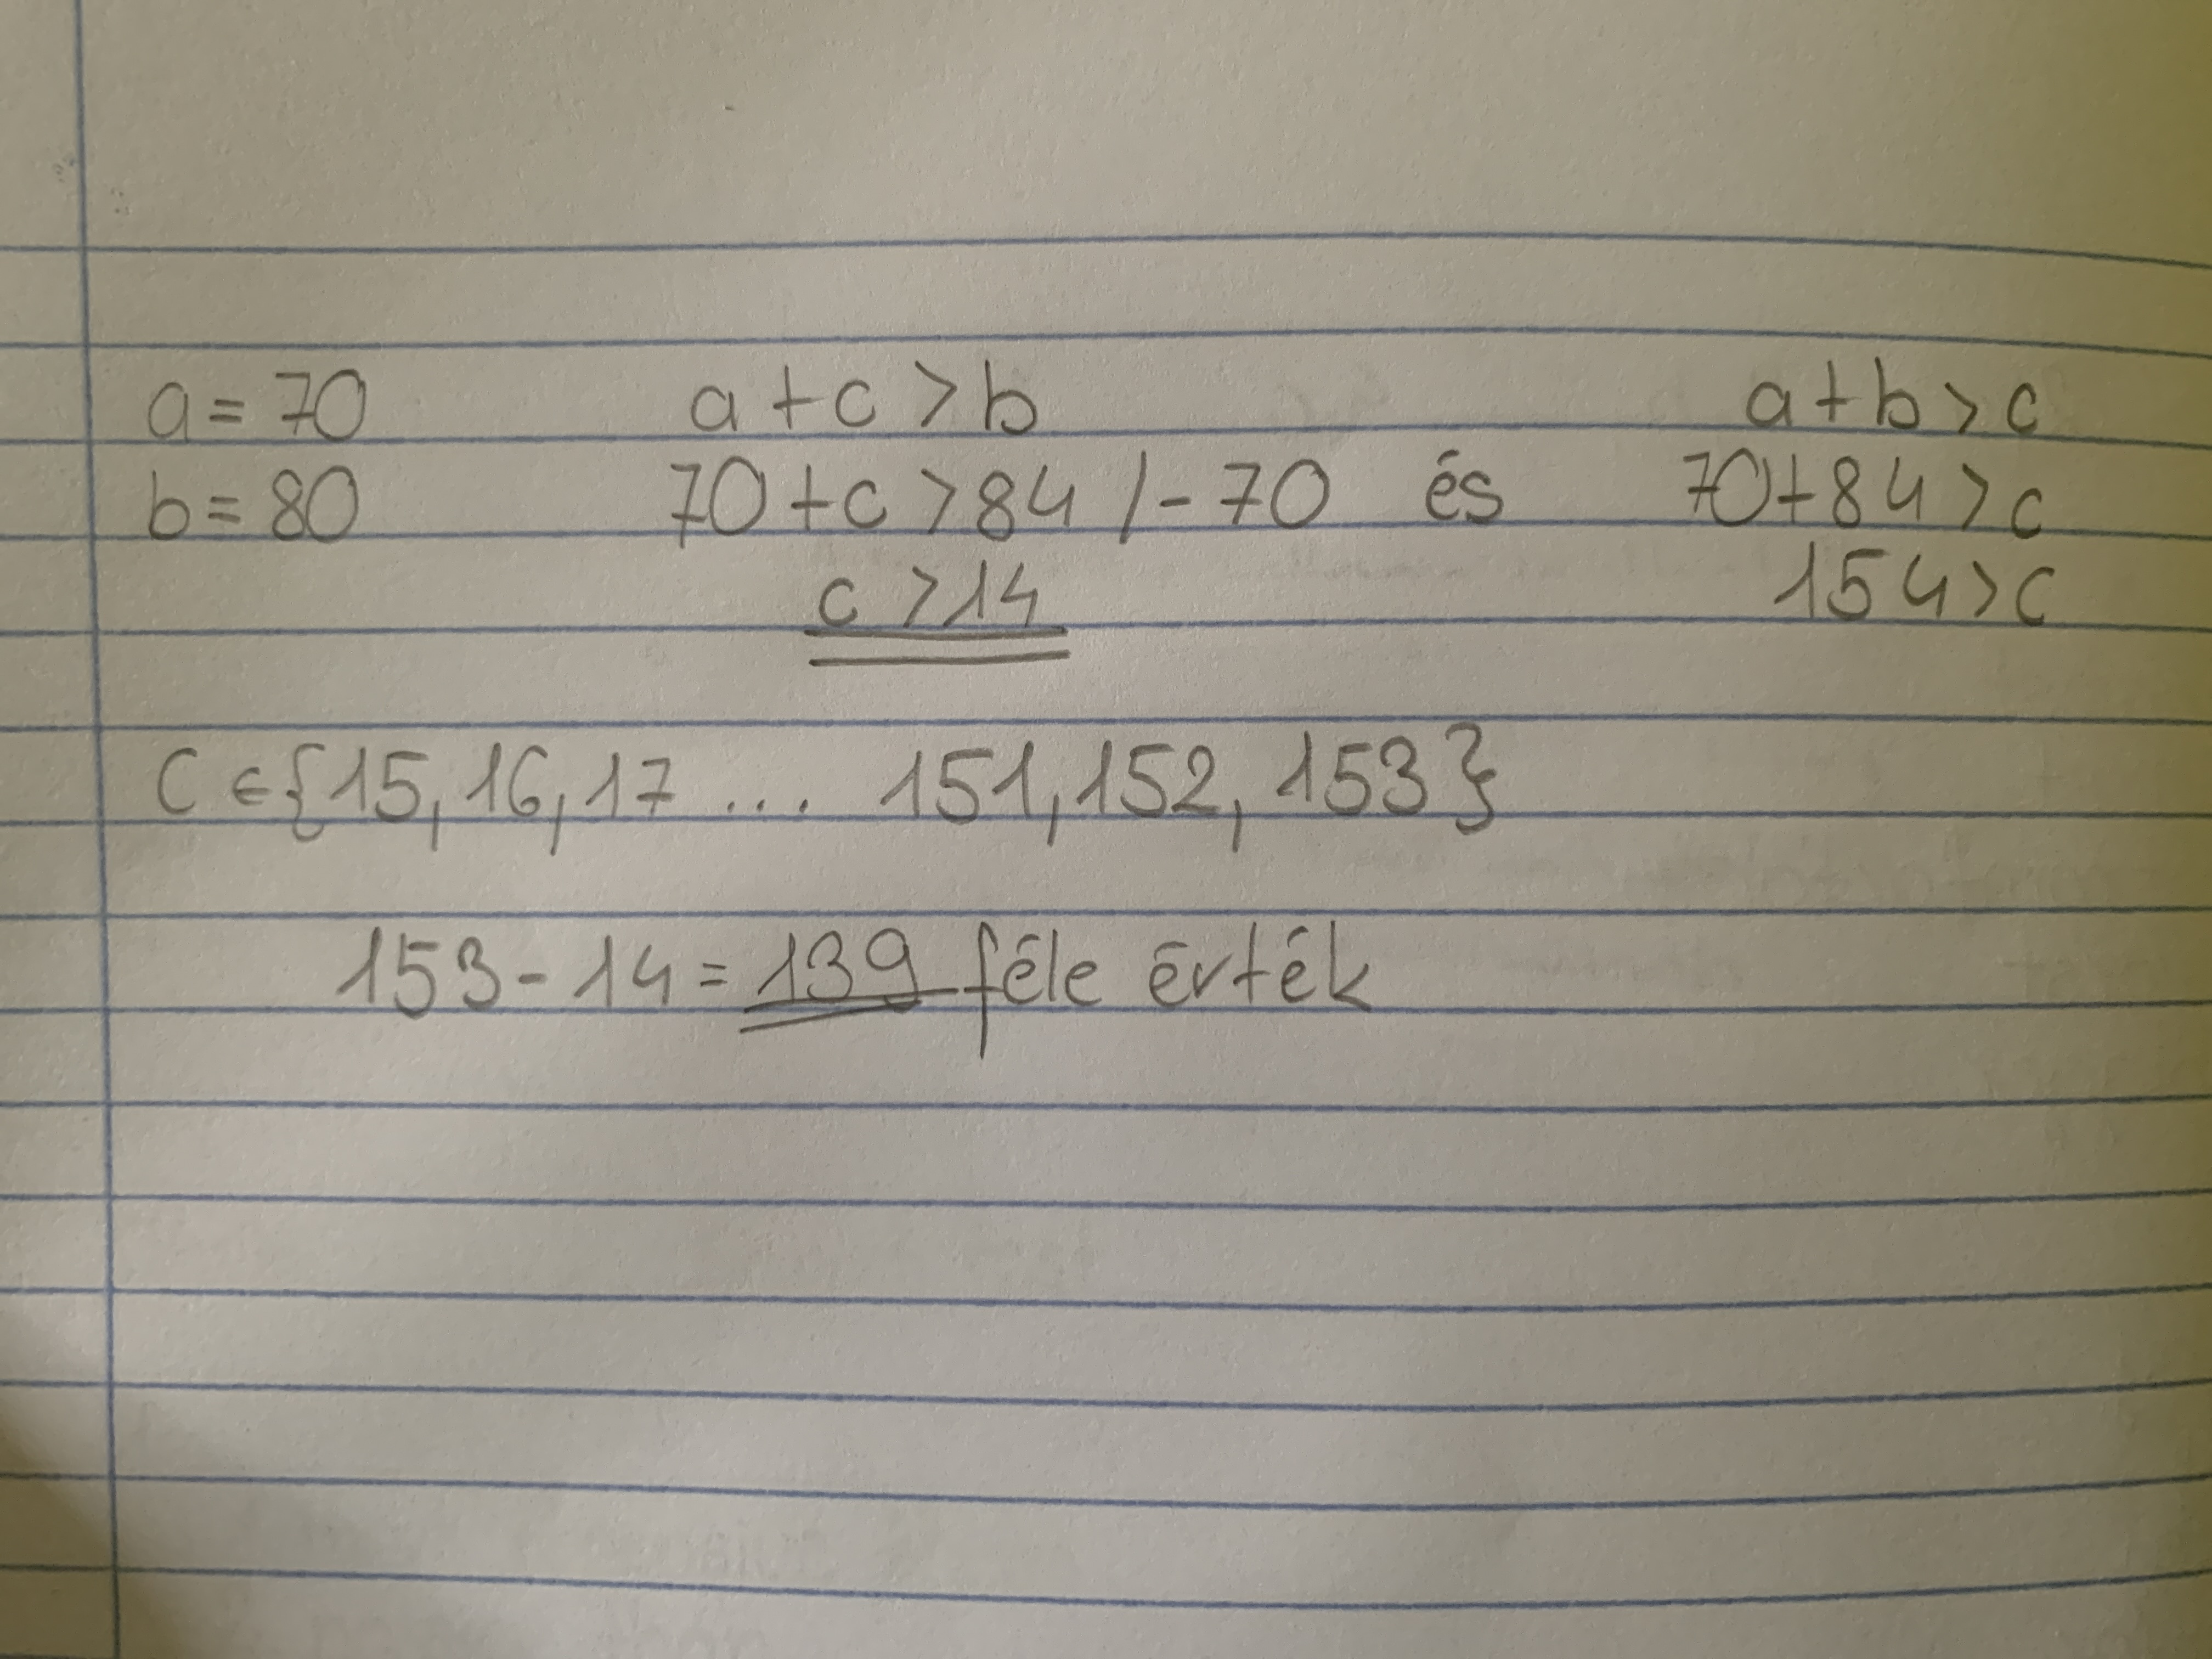 a = 70 a + c > b a + b > c
b = 80 70 + c > 84 / - 70 és 70 + 84 > c
c > 14 154 > c
C ∈ {15, 16, 17 ... 151, 152, 153}
153 - 14 = 139 féle érték